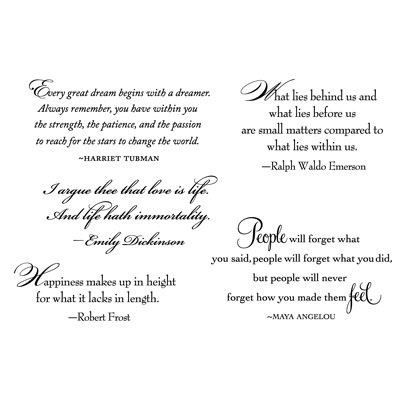 Every great dream begins with a dreamer.
Always remember, you have within you
the strength, the patience, and the passion
to reach for the stars to change the world.
~HARRIET TUBMAN
What lies behind us and
what lies before us
are small matters compared to
what lies within us.
—Ralph Waldo Emerson
I argue thee that love is life.
And life hath immortality.
—Emily Dickinson
People will forget what
you said, people will forget what you did,
but people will never
forget how you made them feel.
~MAYA ANGELOU
Happiness makes up in height
for what it lacks in length.
—Robert Frost